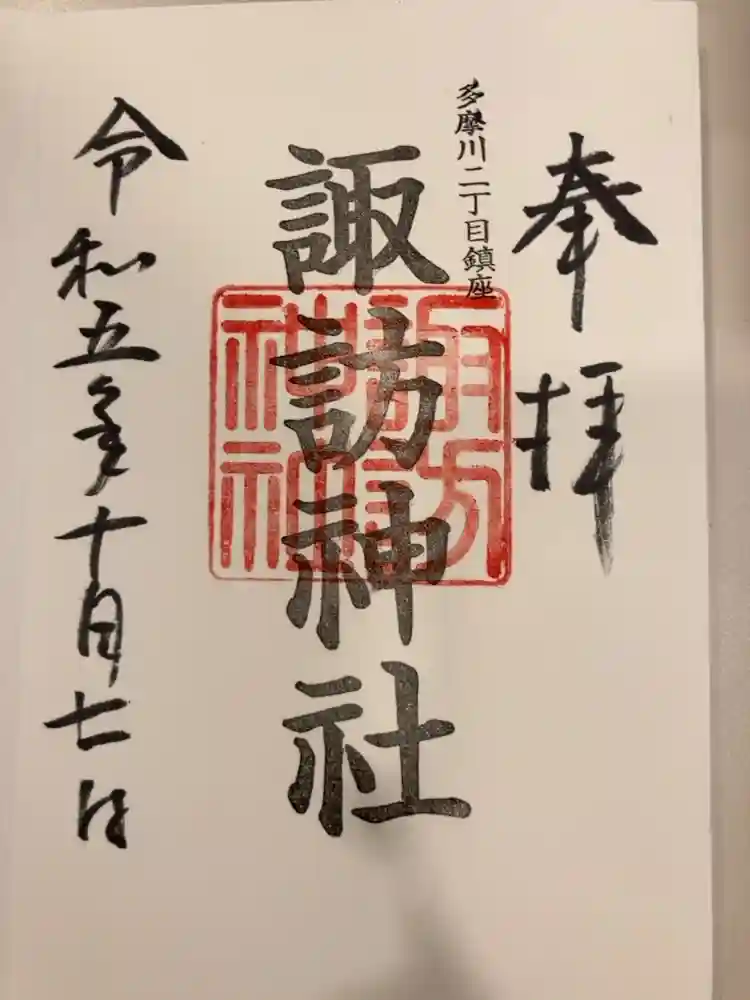 奉拝
多摩川二丁目鎮座
諏訪神社
諏訪
神社
令和五年十月七日